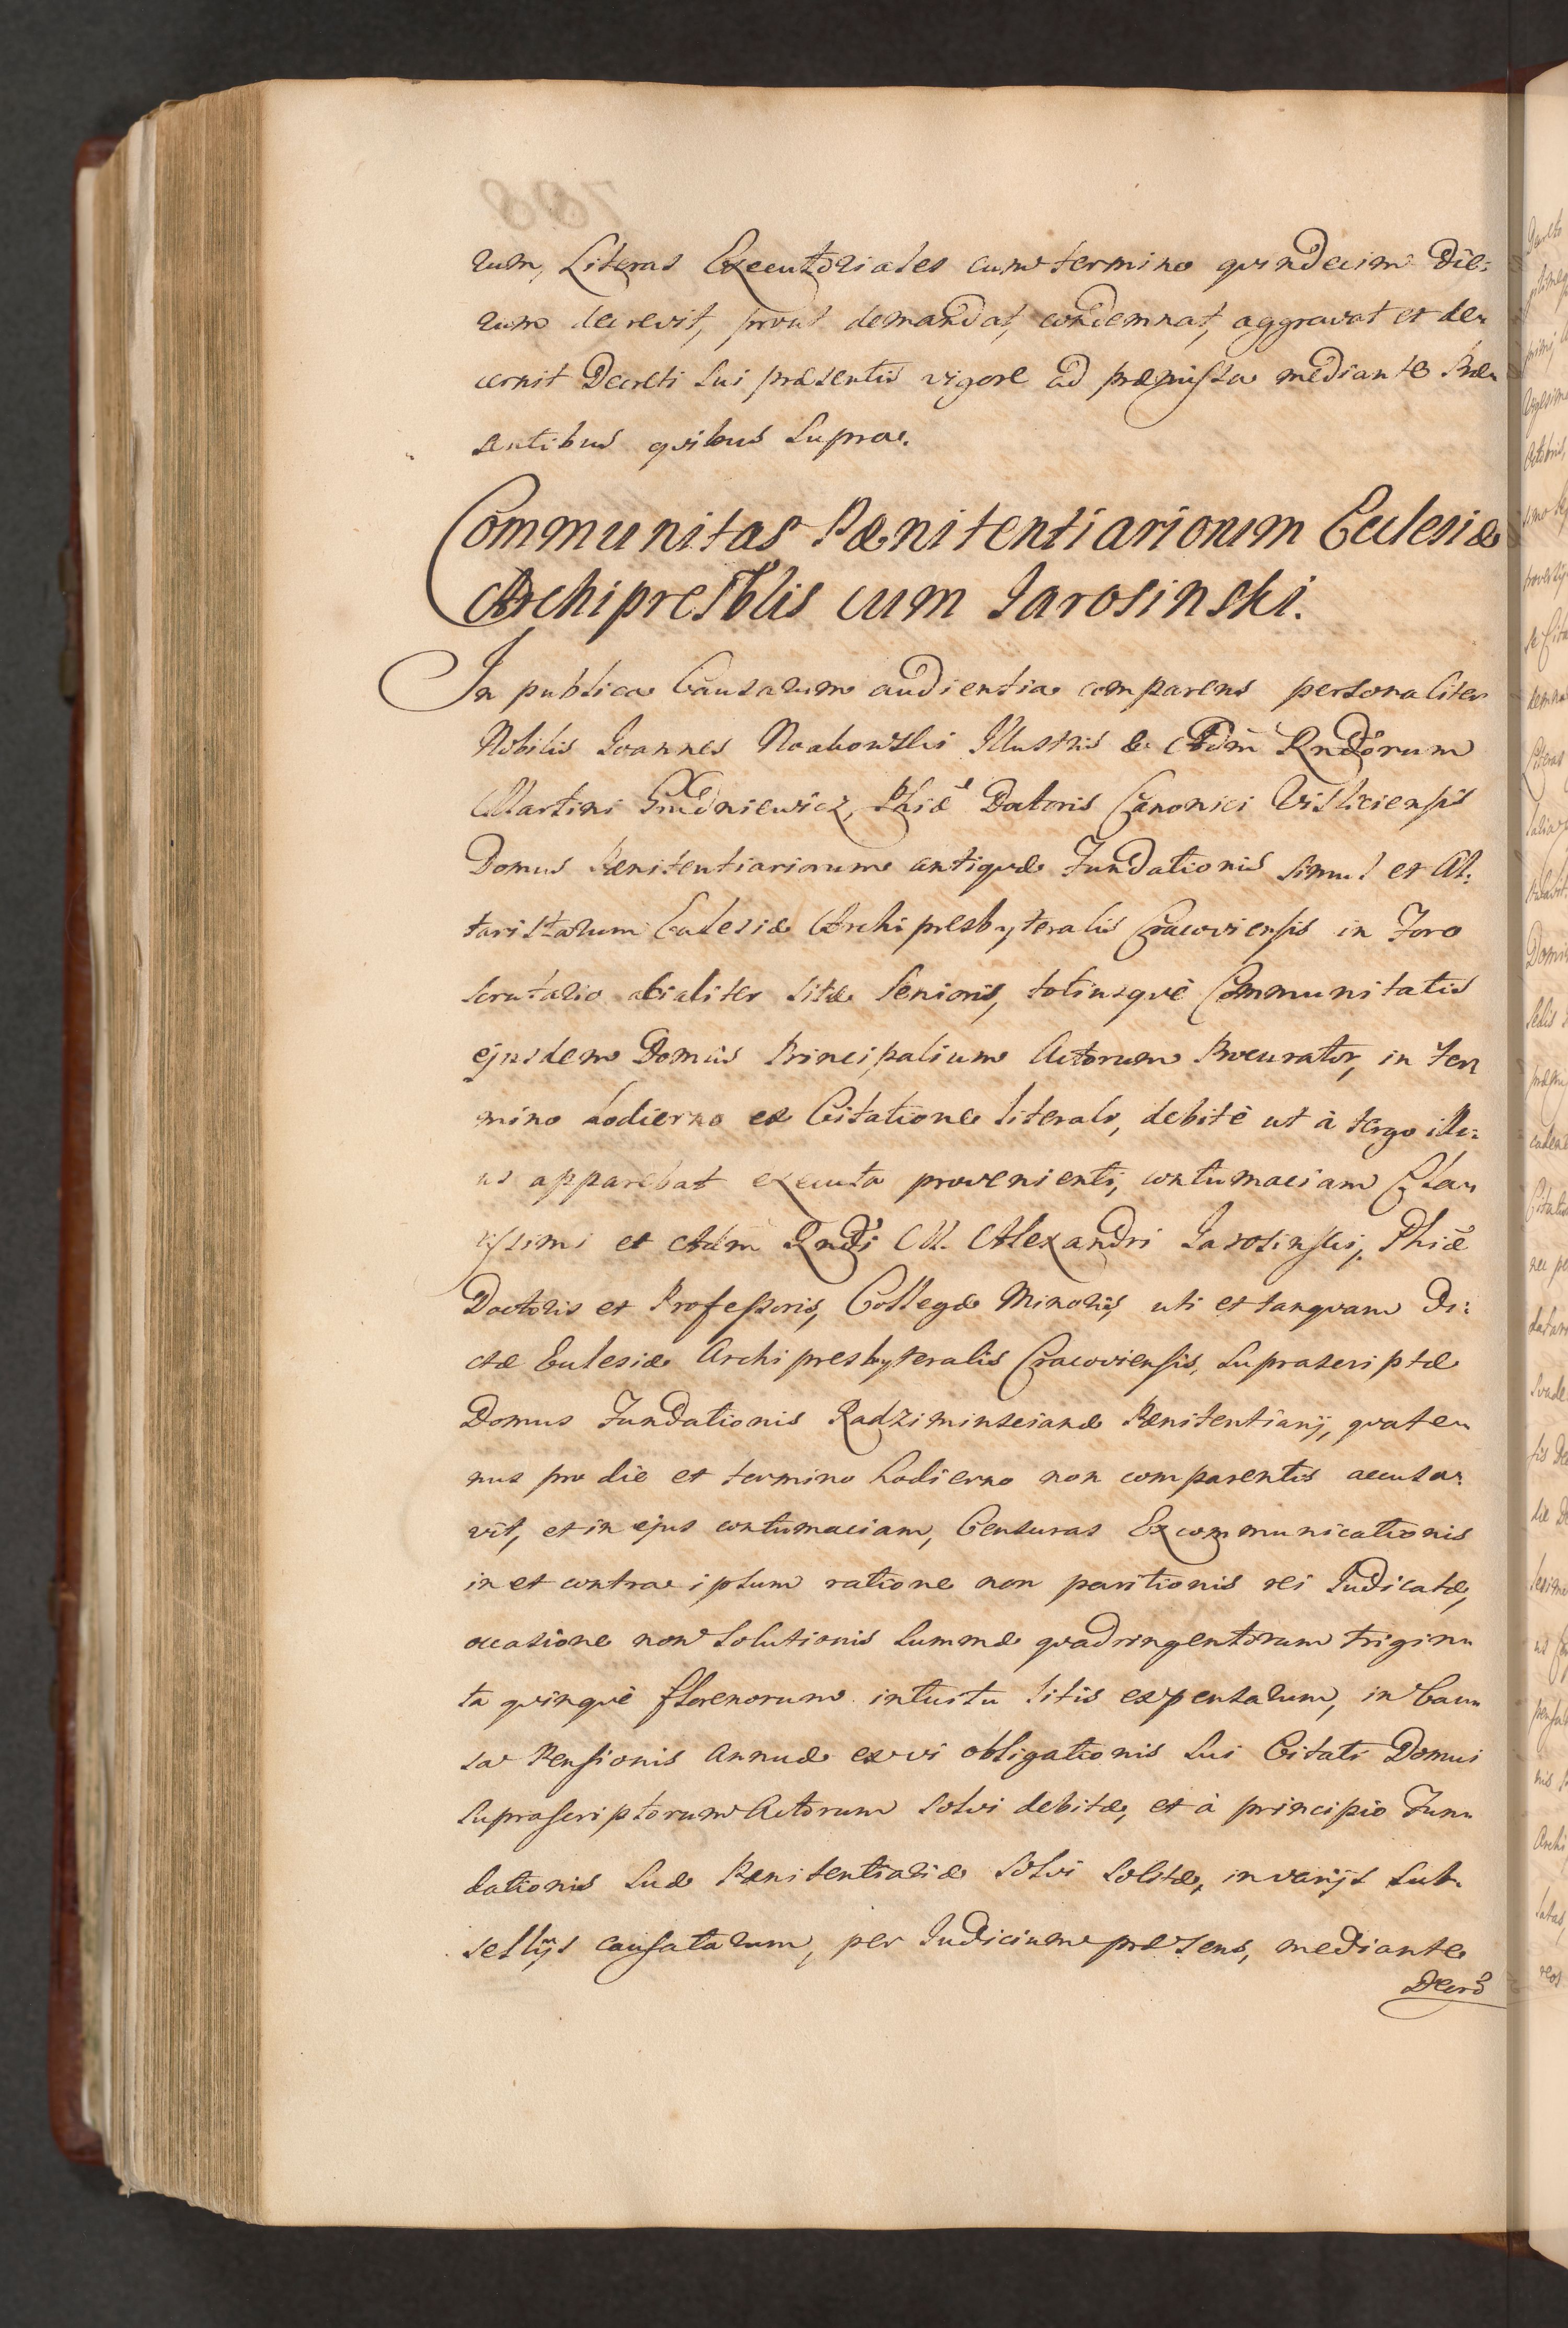 rum, Literas Executoriales cum termino quindecim die:
rum decrevit, prout demandat, condemnat, aggravat et de„
cernit Decreti sui præsentis vigore ad præmissa mediante Præ„
sentibus quibus supra.
Communitas Pænitentiariorum Ecclesiæ
Archipresblis cum Jarosinski.
In publica Causarum audientia comparens personaliter
Nobilis Joannes Illustris & Adm Rndorum
Martini Phiæ Doctoris Canonici Visliciensis
Domus Pænitentiariorum antiquæ Fundationis simul et Al:
taristarum Ecclesiæ Archipresbyteralis Cracoviensis in Foro
scrutario acialiter sitæ Senioris, totiusquè Communitatis
ejusdem Domûs Principalium Actorum Procurator, in Ter„
mino hodierno ex Citatione literali, debitè ut à tergo illi:
us apparebat executa provenienti, contumaciam Cla„
rissimi et Adm Rndi M. Alexandri Jarosinski, Phiæ
Doctoris et Professoris, Collegæ Minoris, uti et tanquam di:
ctæ Eclesiæ Archipresbyteralis Cracoviensis, suprascriptæ
Domus Fundationis Radziminscianæ Pænitentiarij, quate„
nus pro die et termino hodierno non comparentis accusa„
vit, et in ejus contumaciam, Censuras Excommunicationis
in et contra ipsum ratione non paritionis rei Judicatæ,
occasione non solutionis summæ quadringentorum trigin„
ta quinquè florenorum intuitu litis expensarum, in Cau„
sa Pensionis annuæ ex vi obligationis sui Citati Domui
suprascriptorum Actorum solvi debitæ, et à principio Fun„
dationis suæ Pænitentiariæ solvi solitæ, in varijs sub„
sellijs causatarum, per Judicium præsens, mediante
Decrō